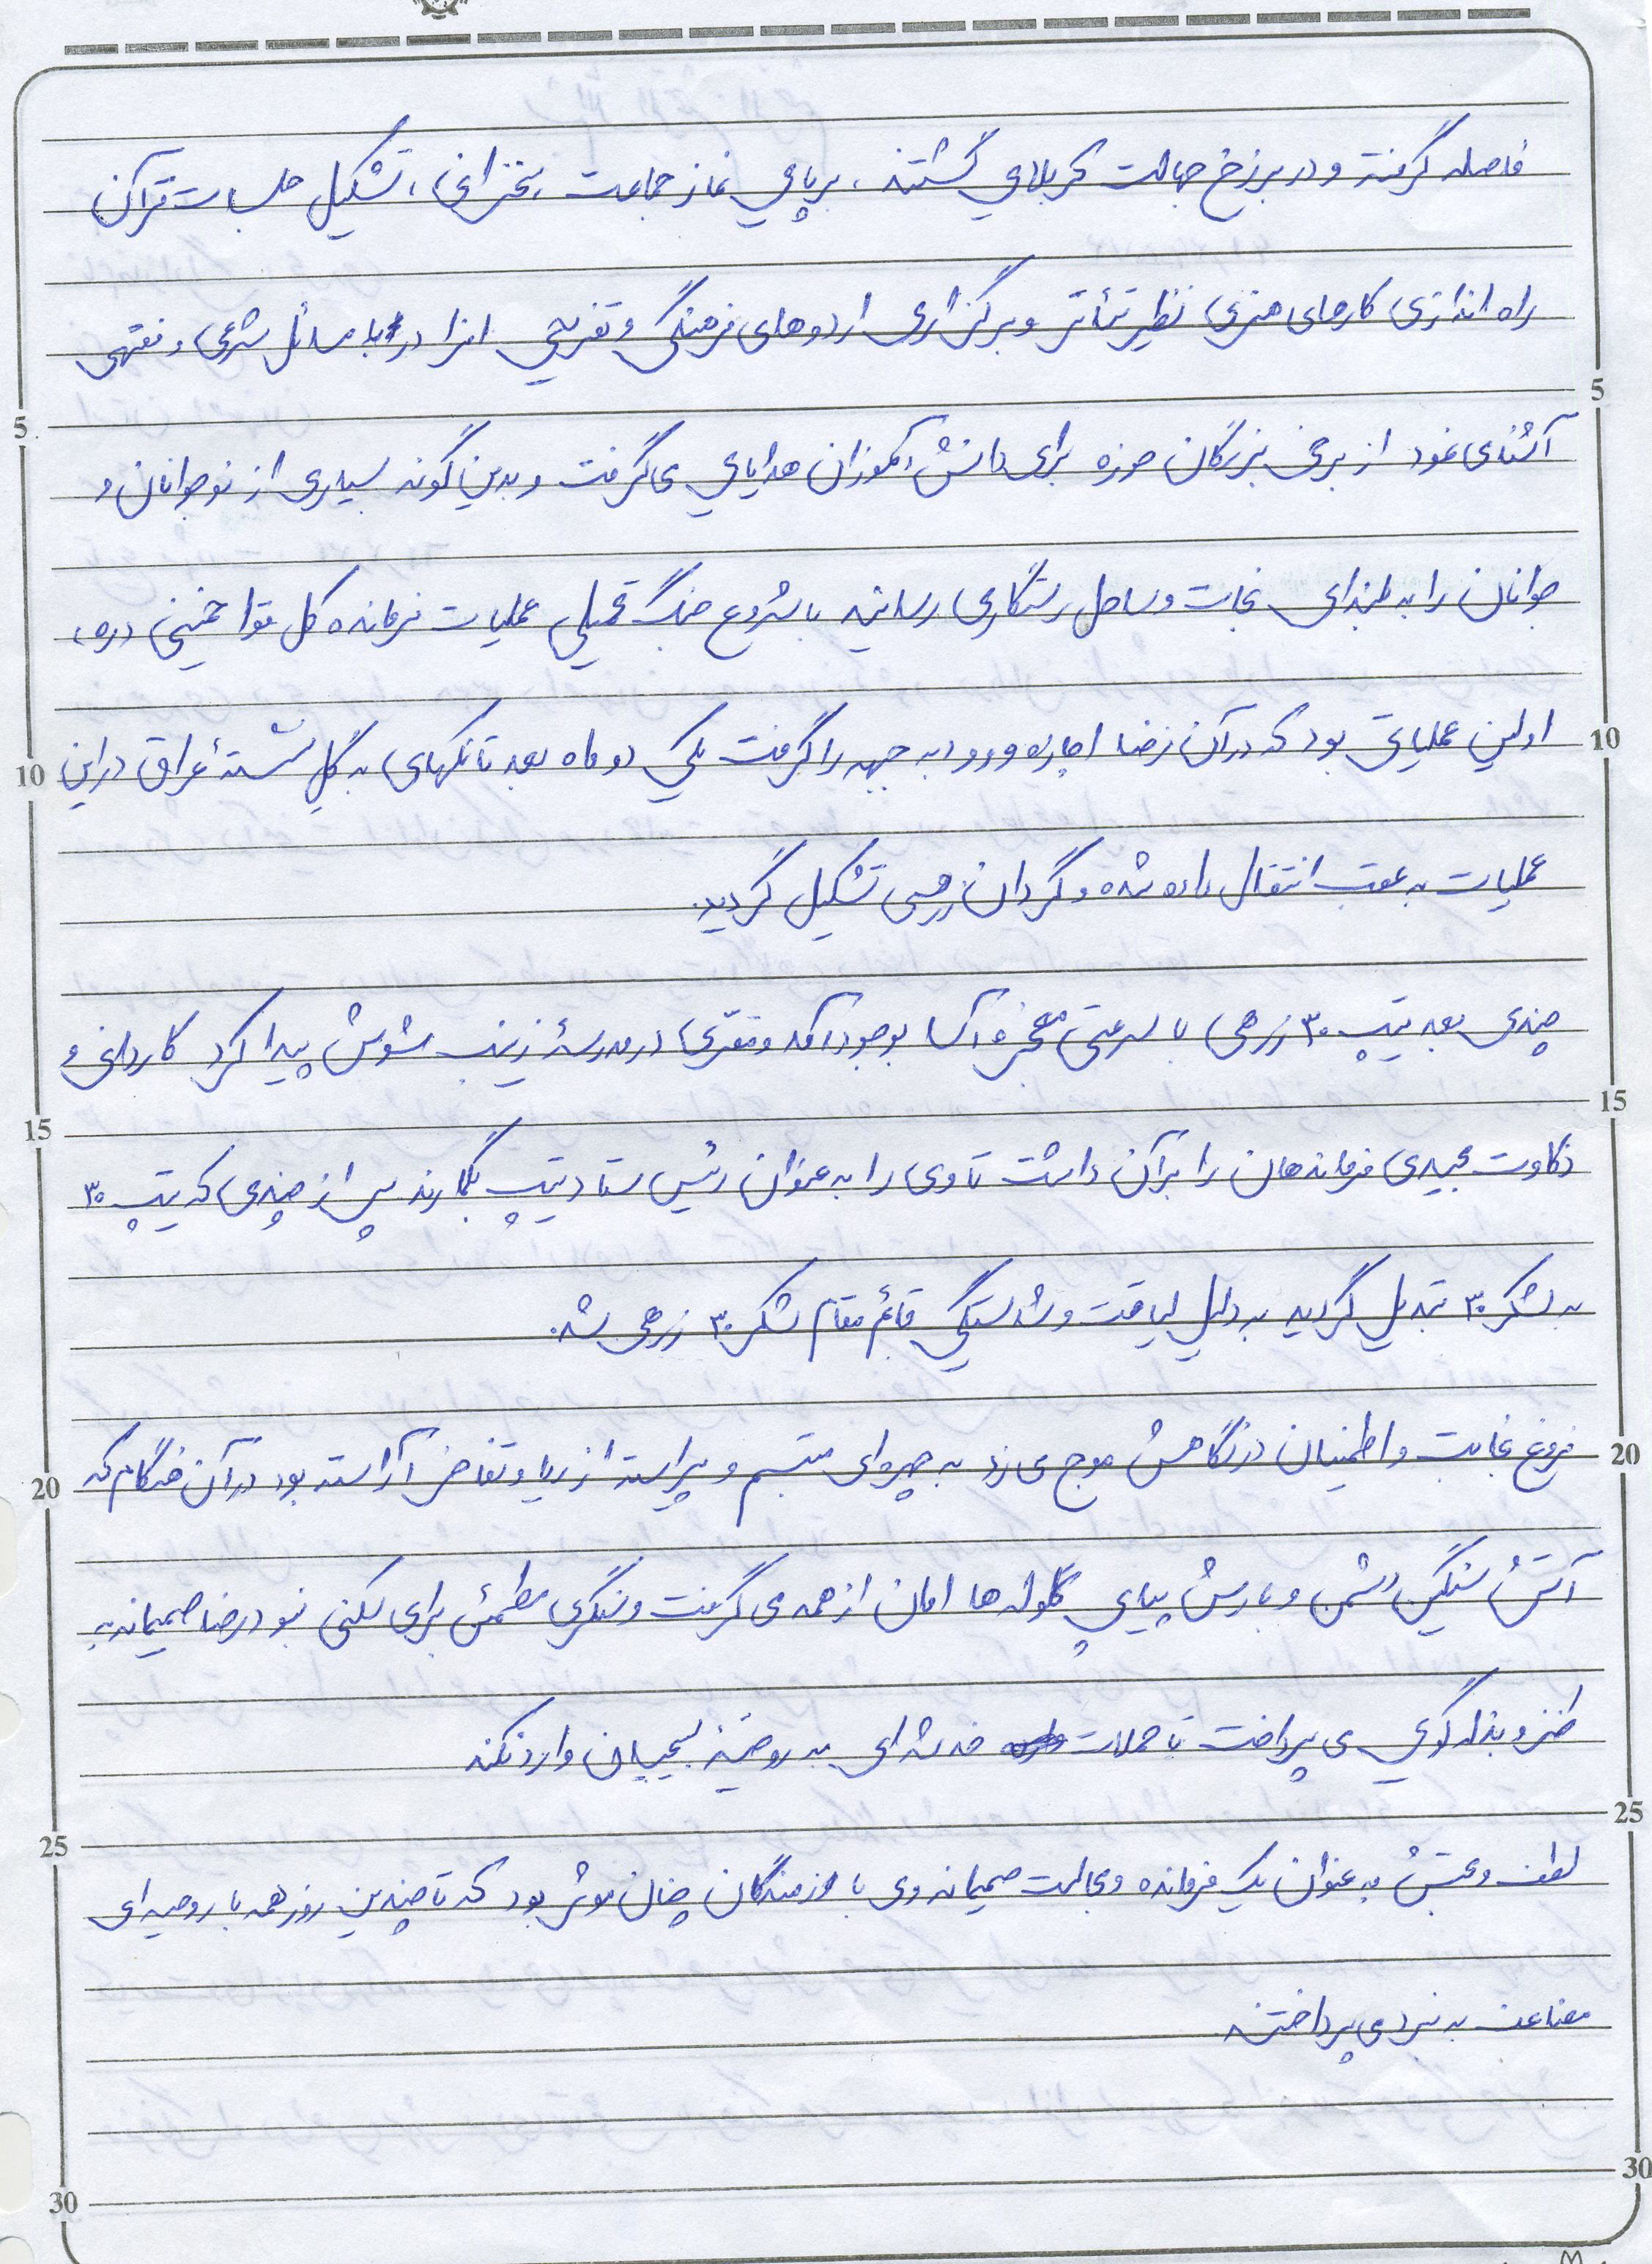 فاصله گرفته و در برزخ جهالت کربلایی گشتند ، برپایی نماز جماعت ، سخنرانی ، تشکیل جلسات قرآن
راه اندازی کارهای هنری نظیر تئاتر و برگزاری اردوهای فرهنگی و تفریحی افراد را با مسائل شرعی و فقهی
آشنا می نمود از برخی بزرگان حوزه برای دانش آموزان هدایایی می گرفت و بدین گونه بسیاری از نوجوانان و
جوانان را به بلندای نجات و ساحل رستگاری رسانید با شروع جنگ تحمیلی عملیات فرمانده کل قوا خمینی (ره)
اولین عملیاتی بود که در آن رضا اجازه ورود به جبهه را گرفت یکی دو ماه بعد تانکهای به گل نشستهٔ عراق در این
عملیات به عقب انتقال داده شده و گردان زرهی تشکیل گردید.
چندی بعد تیپ ۳۰ زرهی با سرعتی معجزه آسا بوجود آمد و مقرّی در مدرسهٔ زینب شوش پیدا کرد کاردانی و
ذکاوت مجیدی فرماندهان را برآن داشت تا وی را به عنوان رئیس ستاد تیپ بگمارند پس از چندی که تیپ ۳۰
به لشکر ۳۰ تبدیل گردید به دلیل لیاقت و شایستگی قائم مقام لشکر ۳۰ زرهی شد.
فروغ نجابت و اطمینان در نگاهش موج می زد به چهره ای متبسم و پیراسته از ریا و تفاخر آراسته بود در آن هنگام که
آتش سنگین دشمن و بارش پیاپی گلوله ها امان از همه می گرفت و سنگری مطمئن برای کسی نبود رضا صمیمانه به
طنز و بذله گویی می پرداخت تا حملات خدشه ای به روحیهٔ بسیجیان وارد نکند
لطف و محبتش به عنوان یک فرمانده و مجالست صمیمانه وی با رزمندگان چنان موثر بود که تا چندین روز همه با روحیه ای
مضاعف به نبرد می پرداختند
5
10
15
20
25
30
5
10
15
20
25
30